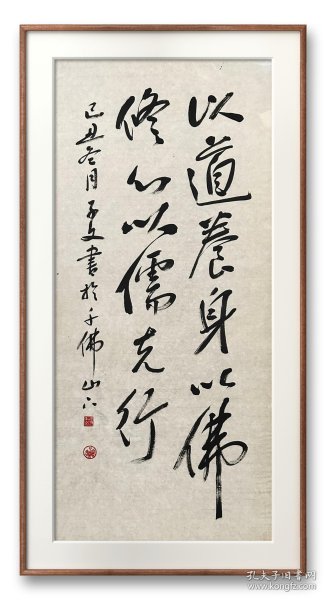 以道養身以佛
修心以儒克行
己丑冬月子文書於千佛山下
孔夫子旧书网
www.kongfz.com